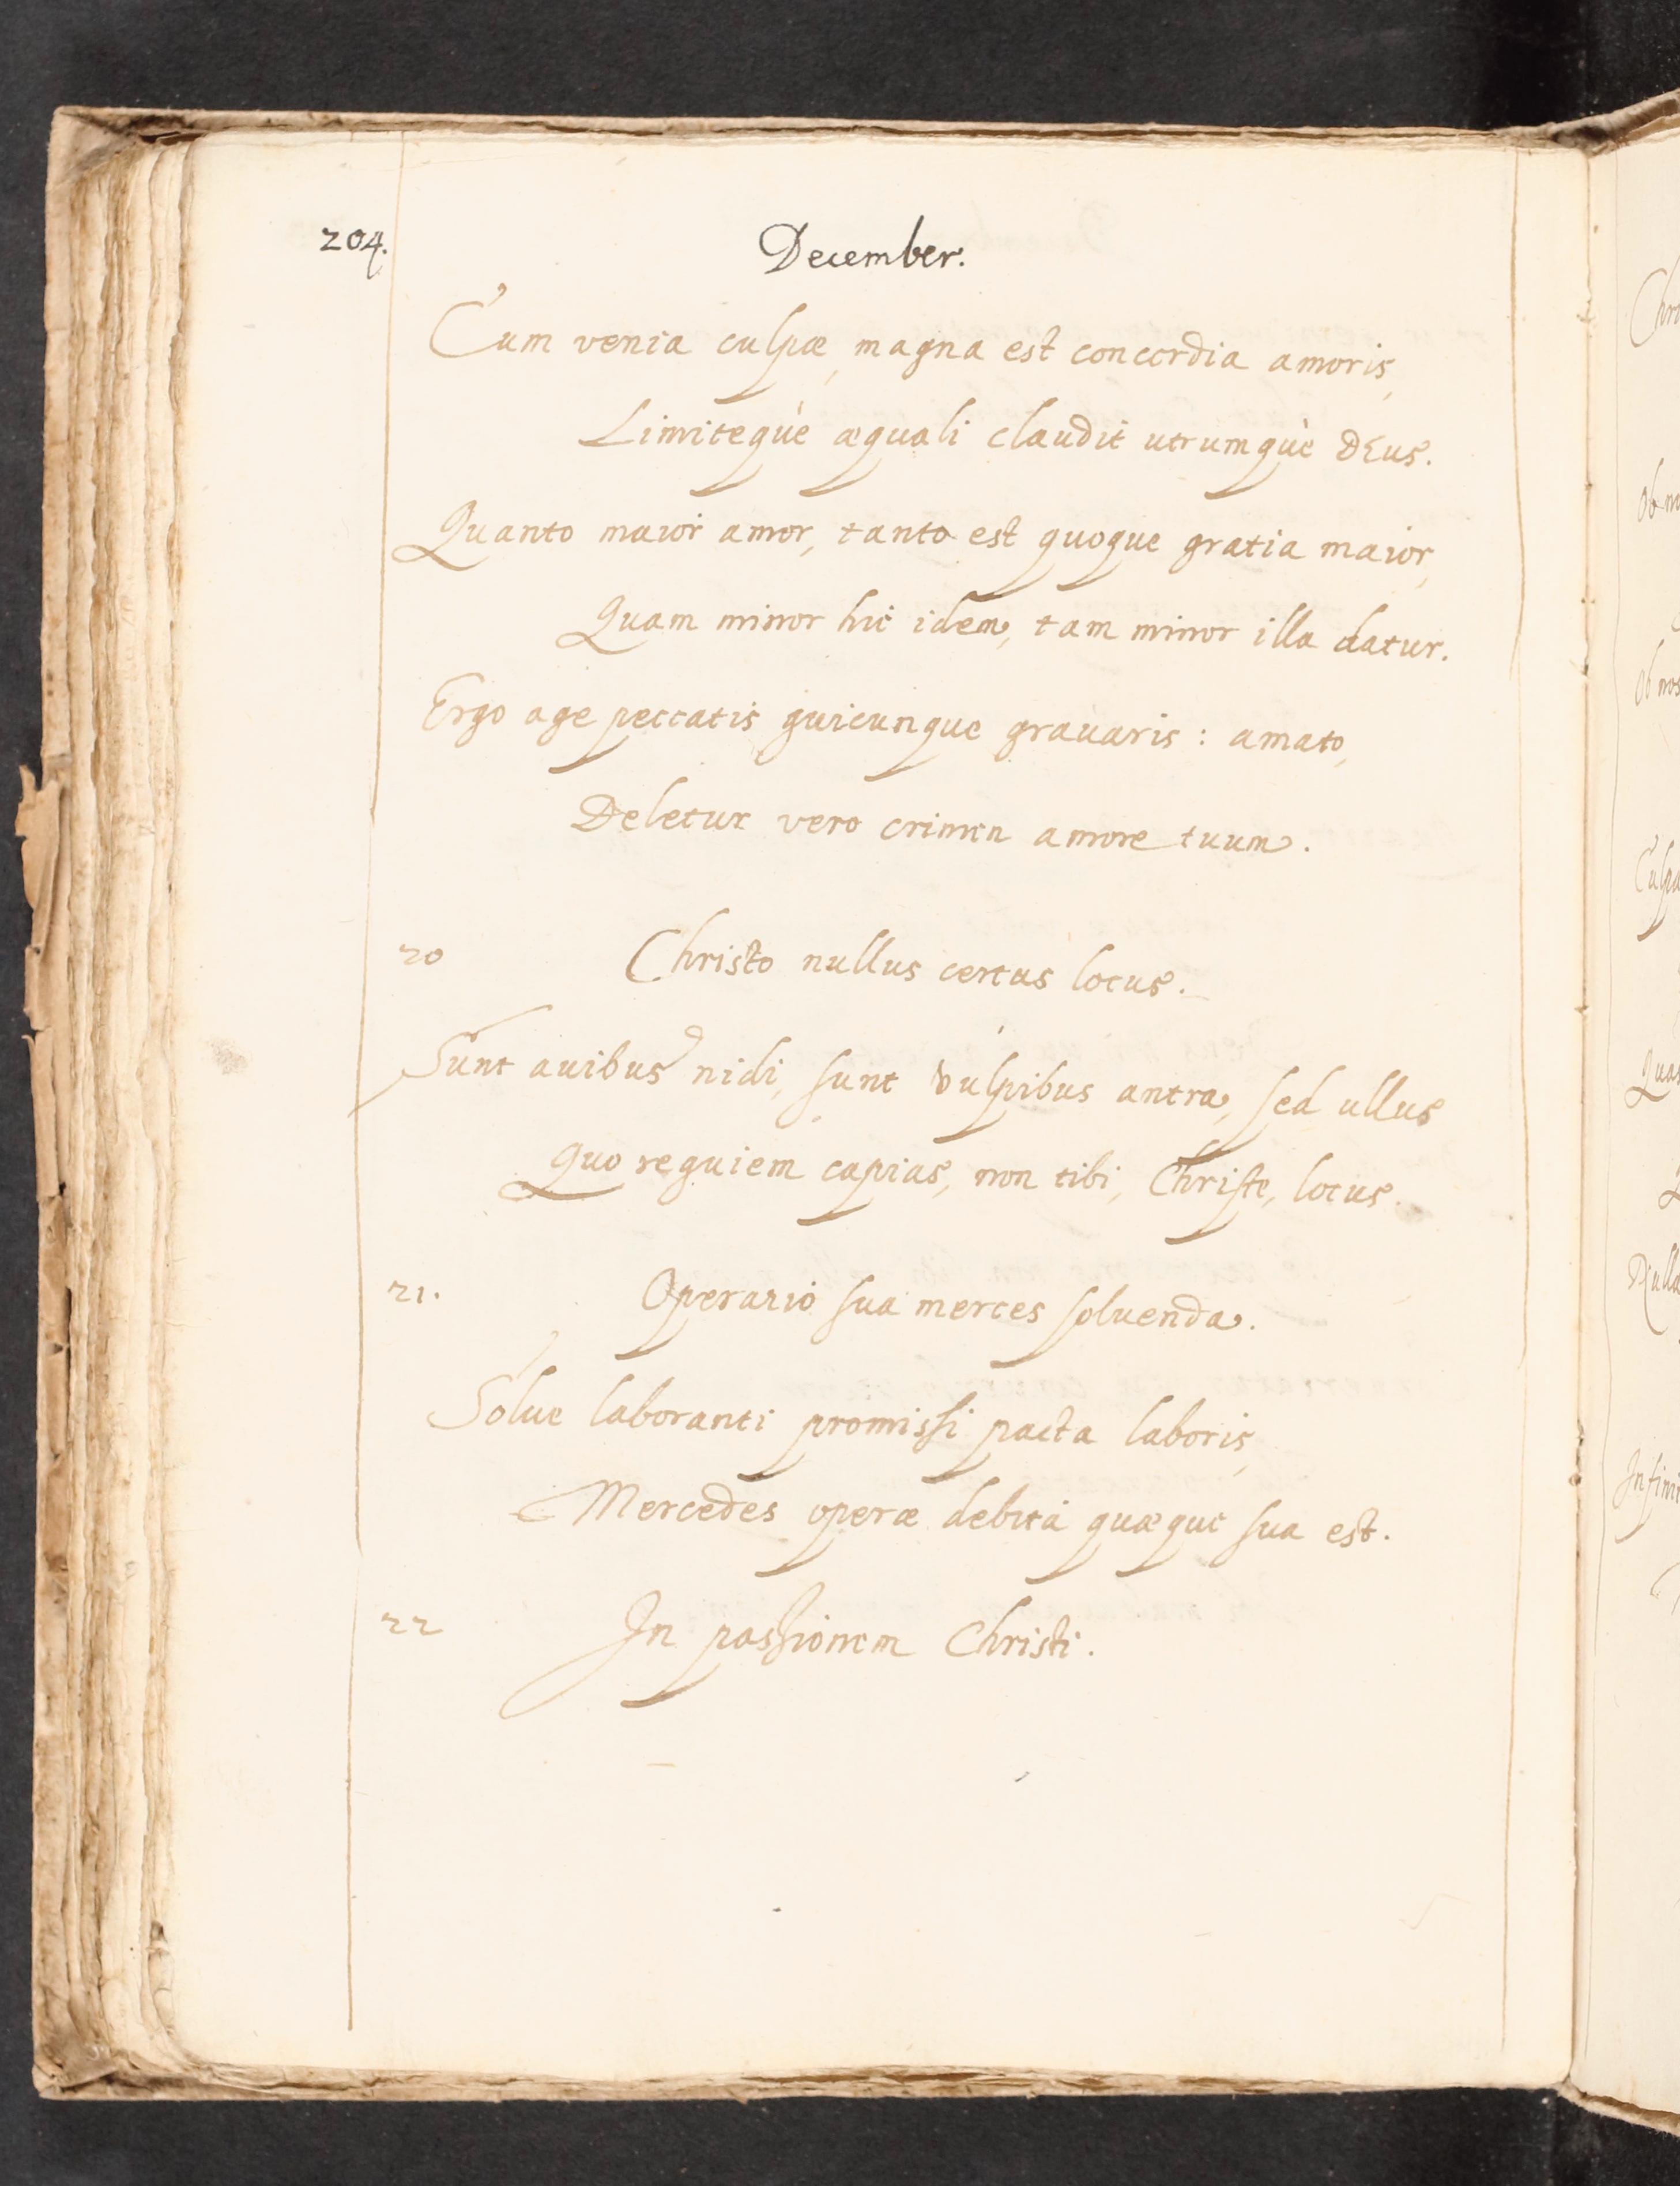 204.
December.
Cum venia culpæ, magna est concordia amoris,
Limitequè æquali claudit utrumquè DEus.
Quanto maior amor, tanto est quoque gratia maior,
Quam minor hic idem, tam minor illa datur.
Ergo age peccatis quicunque grauaris : amato,
Deletur vero crimen amore tuum.
20 Christo nullus certus locus.
Sunt auibus nidi, sunt vulpibus antra, sed ullus
Quo requiem capias, non tibi, Christe, locus.
21. Operario sua merces soluenda.
Solue laboranti promissi pacta laboris,
Mercedes operæ debita quæque sua est.
22 In passionem Christi.